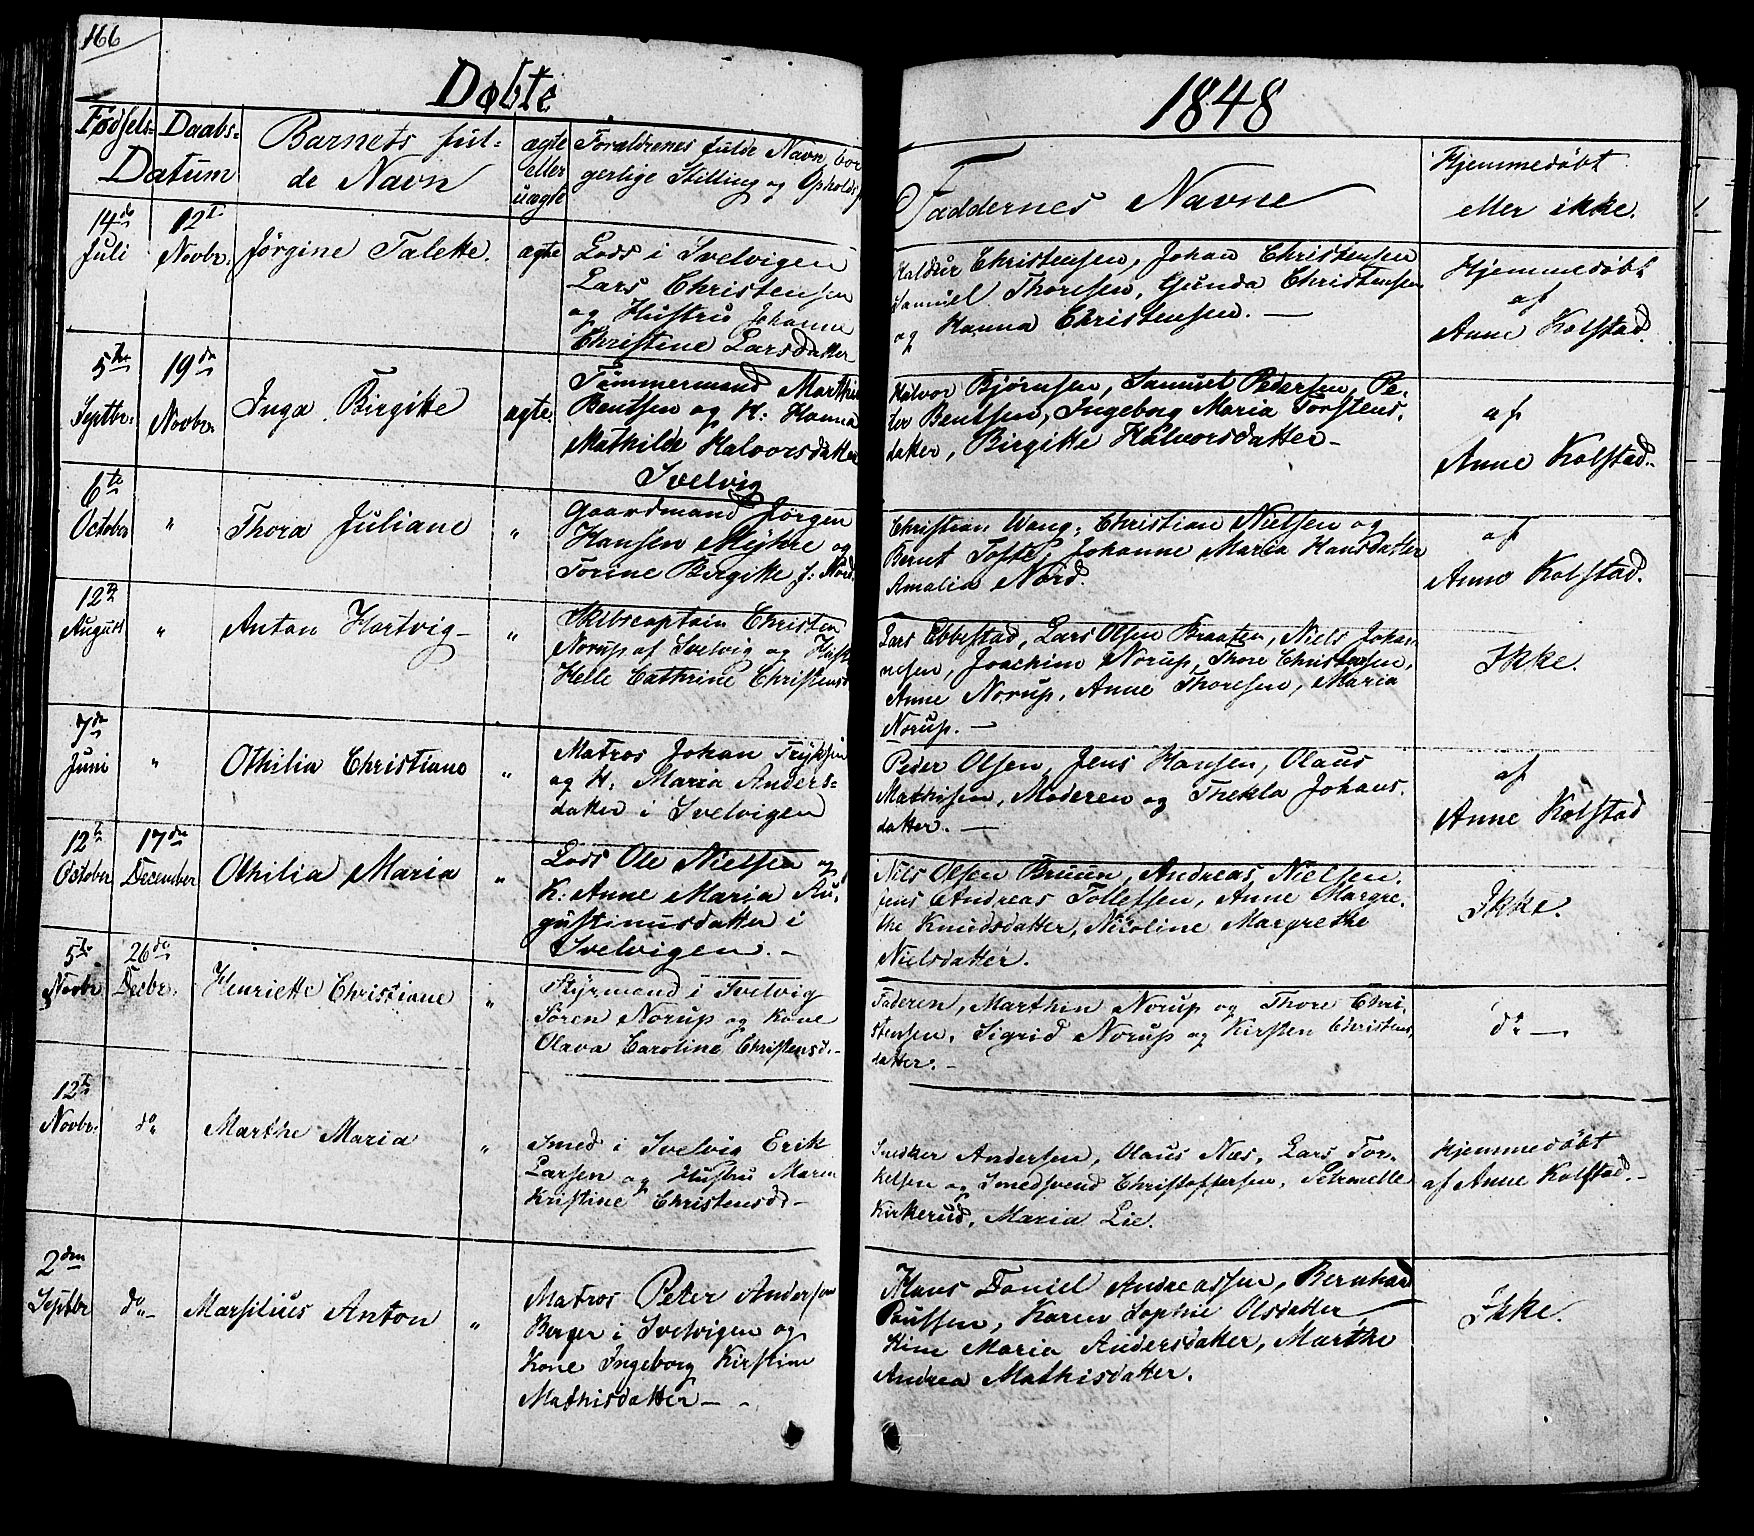 166
Døbte 1848
Fødsels- Daabs- Datum
Barnets ful-
de Navn
ægte
eller
uægte
Foraldrenes fulde Navn, bor
gerlige Stilling og Ophold
Faddernes Navne
Hjemmedøbt
eller ikke.
14de
Juli
12te
Novbr.
Jørgine Talette.
ægte
Lods i Svelvigen
Lars Christensen
og Hustru Johanne
Christine Larsdatter
Christensen, Johan Christensen
Samuel Thoresen, Gunda Christensen
og Hanna Christensen. —
Hjemmedøbt
af
Anne Kolstad.
5te
Septbr.
19de
Novbr.
Inga Birgitte
ægte.
Tømmermand Marthin
Bentsen og H: Hanna
Mathilde Halvorsdatter
Svelvig
Halvor Bjørnsen, Samuel Pedersen, Pe-
ter Bentsen, Ingeborg Maria Torstens-
datter, Birgitte Halvorsdatter -
af
Anne Kolstad.
6te
October
"
Thora Juliane
"
Gaardmand Jørgen
Hansen Myhre og
Torine Birgitte f: Nord
Christian Wang, Christian Nielsen og
Bernt Tofte, Johanne Maria Hansdatter
Amalia Nord.
af
Anne Kolstad.
12te
August
"
Anton Hartvig -
"
Skibscaptain Christen
Norup af Svelvig og Hust
Helle Cathrine Christensd
Lars Ebbestad, Lars Olsen Braaten, Niels Johan-
nesen, Joachim Norup, Thore Christensen,
Anne Norup, Anne Thoresen, Maria
Norup. —
Ikke.
7de
Juni
"
Othilia Christiane
"
Matros Johan
og H: Maria Anders-
datter i Svelvigen
Peder Olsen, Jens Hansen, Olaus
Mathisen, Moderen og Thekla Johans-
datter. —
af
Anne Kolstad
12te
October
17de
December
Othilia Maria
"
Lods Ole Nielsen og
K: Anne Maria Au-
gustinusdatter i
Svelvigen. -
Nils Olsen Bruun, Andreas Nielsen,
Jens Andreas Tollefsen, Anne Margre-
the Knudsdatter, Nicoline Margrethe
Nielsdatter.
Ikke.
5te
Novbr
26de
Decbr.
Henriette Christiane
"
Styrmand i Svelvig
Søren Norup og Kone
Olava Caroline Christensd. -
Faderen, Marthin Norup og Thore Chri-
stensen, Sigrid Norup og Kirsten Christens-
datter. -
do —
12te
Novbr:
do
Marthe Maria
"
Smed i Svelvig Erik
Larsen og Hustru Maren
Kristine Christensd. -
Snedker Andersen, Olaus Næs, Lars Tor-
kelsen og Smedsvend Christoffersen, Petronelle
Kirkerud, Maria Lie.
Hjemmedøbt
af Anne Kolstad. -
2den
Septbr
do -
Marsilius Anton
"
Matros Peter Andersen
Berger i Svelvigen og
Kone Ingeborg Kirstine
Mathisdatter - -
Hans Daniel Andreassen, Bernhard
Paulsen, Karen Sophie Olsdatter,
Maria Andersdatter, Marthe
Andrea Mathisdatter.
Ikke.